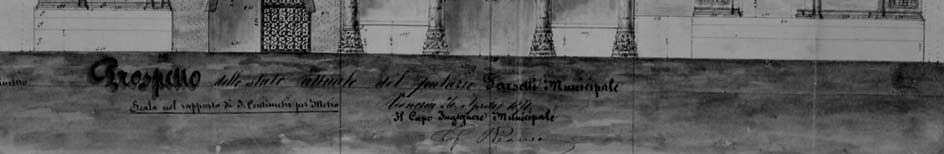 Prospetto dello stato attuale del palazzo Farsetti Municipale
Scala nel rapporto di 5 Centimetri per Metro
Venezia 26
Il Capo Ingegnere Municipale